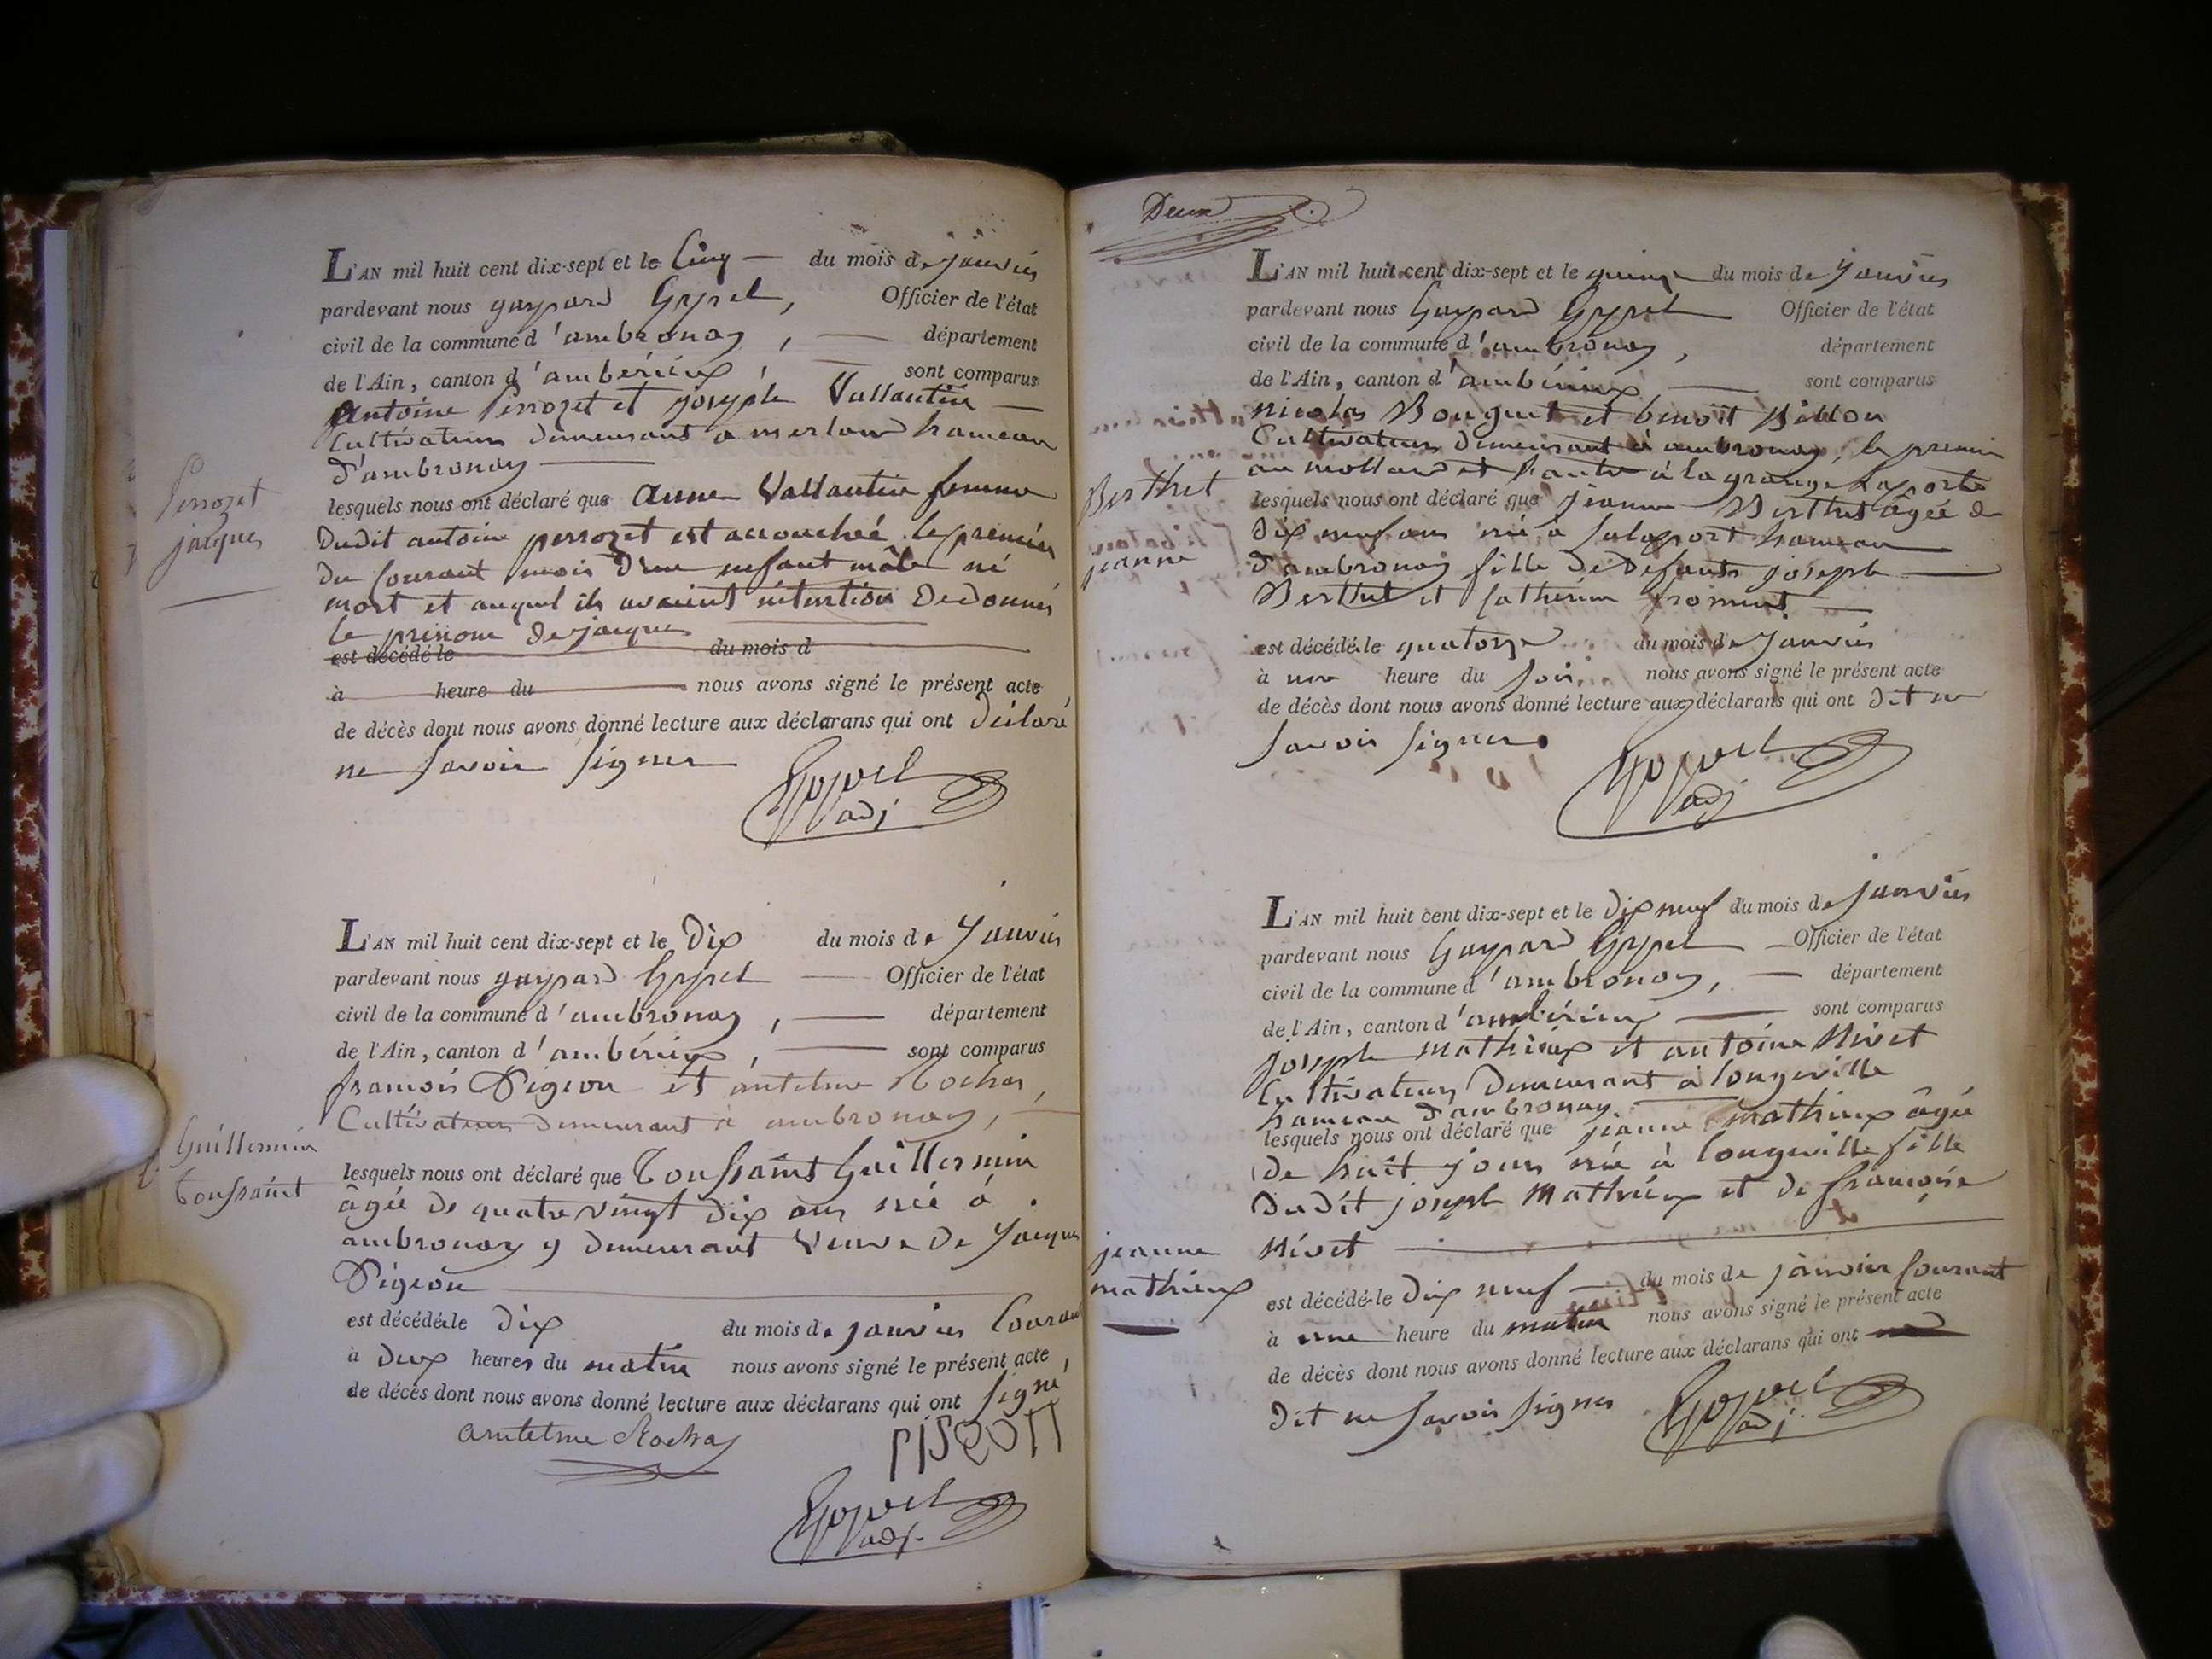 L'AN mil huit cent dix-sept et le Cinq du mois de janvier
pardevant nous gaspard Officier de l'état
civil de la commune d'ambronay, département
de l'Ain, canton d'ambérieux, sont comparus
antoine Perrozet et joseph Vallantin
Cultivateurs demeurant a merland hameau
d'ambronay
lesquels nous ont déclaré que anne Vallantin femme
Dudit antoine perrozet est accouchée le premier
du Courant mois d'un enfant mâle né
mort et auquel ils avaient intention de donner
le prénom de jacques
est décédé le du mois d
à heure du nous avons signé le présent acte
de décès dont nous avons donné lecture aux déclarans qui ont déclaré
ne savoir signer
adj
Perrozet
jacques
L'AN mil huit cent dix-sept et le Dix du mois de Janvier
pardevant nous gaspard Officier de l'état
civil de la commune d'ambronay, département
de l'Ain, canton d'ambérieux, sont comparus
francois Pigeon et antelme Rochas
Cultivateurs demeurant à ambronay,
lesquels nous ont déclaré que Toussaint Guillermin
âgée de quatre vingt dix ans née à
ambronay y demeurant Veuve de Jacques
Pigeon
est décédée le dix du mois de janvier Courant
à deux heures du matin nous avons signé le présent acte,
de décès dont nous avons donné lecture aux déclarans qui ont signé
antelme Rochas
PISEON
adj.
Guillermin
Toussaint
Deux
L'AN mil huit cent dix-sept et le quinze du mois de Janvier
pardevant nous Gaspard Officier de l'état
civil de la commune d'ambronay, département
de l'Ain, canton d'ambérieux sont comparus
nicolas Bouguet et benoît Billon
Cultivateurs demeurant à ambronay, le premier
au mollard et l'autre à la grange Laporte
lesquels nous ont déclaré que jeanne Berthet âgée de
dix neuf ans née à hameau
d'ambronay fille de defunts joseph
Berthet et Catherine froment
est décédée le quatorze du mois de Janvier
à une heure du soir nous avons signé le présent acte
de décès dont nous avons donné lecture aux déclarans qui ont dit ne
savoir signer.
adj
Berthet
jeanne
L'AN mil huit cent dix-sept et le dix neuf du mois de janvier
pardevant nous Gaspard Officier de l'état
civil de la commune d'ambronay, département
de l'Ain, canton d'ambérieux sont comparus
joseph mathieux et antoine Nivet
Cultivateurs demeurant à longeville
hameau d'ambronay.
lesquels nous ont déclaré que jeanne mathieux âgée
de huit jours née à longeville fille
dudit joseph Mathieux et de françoise
Nivet
est décédée le dix neuf du mois de janvier Courant
à une heure du matin nous avons signé le présent acte
de décès dont nous avons donné lecture aux déclarans qui ont
dit ne savoir signer
adj.
jeanne
mathieux